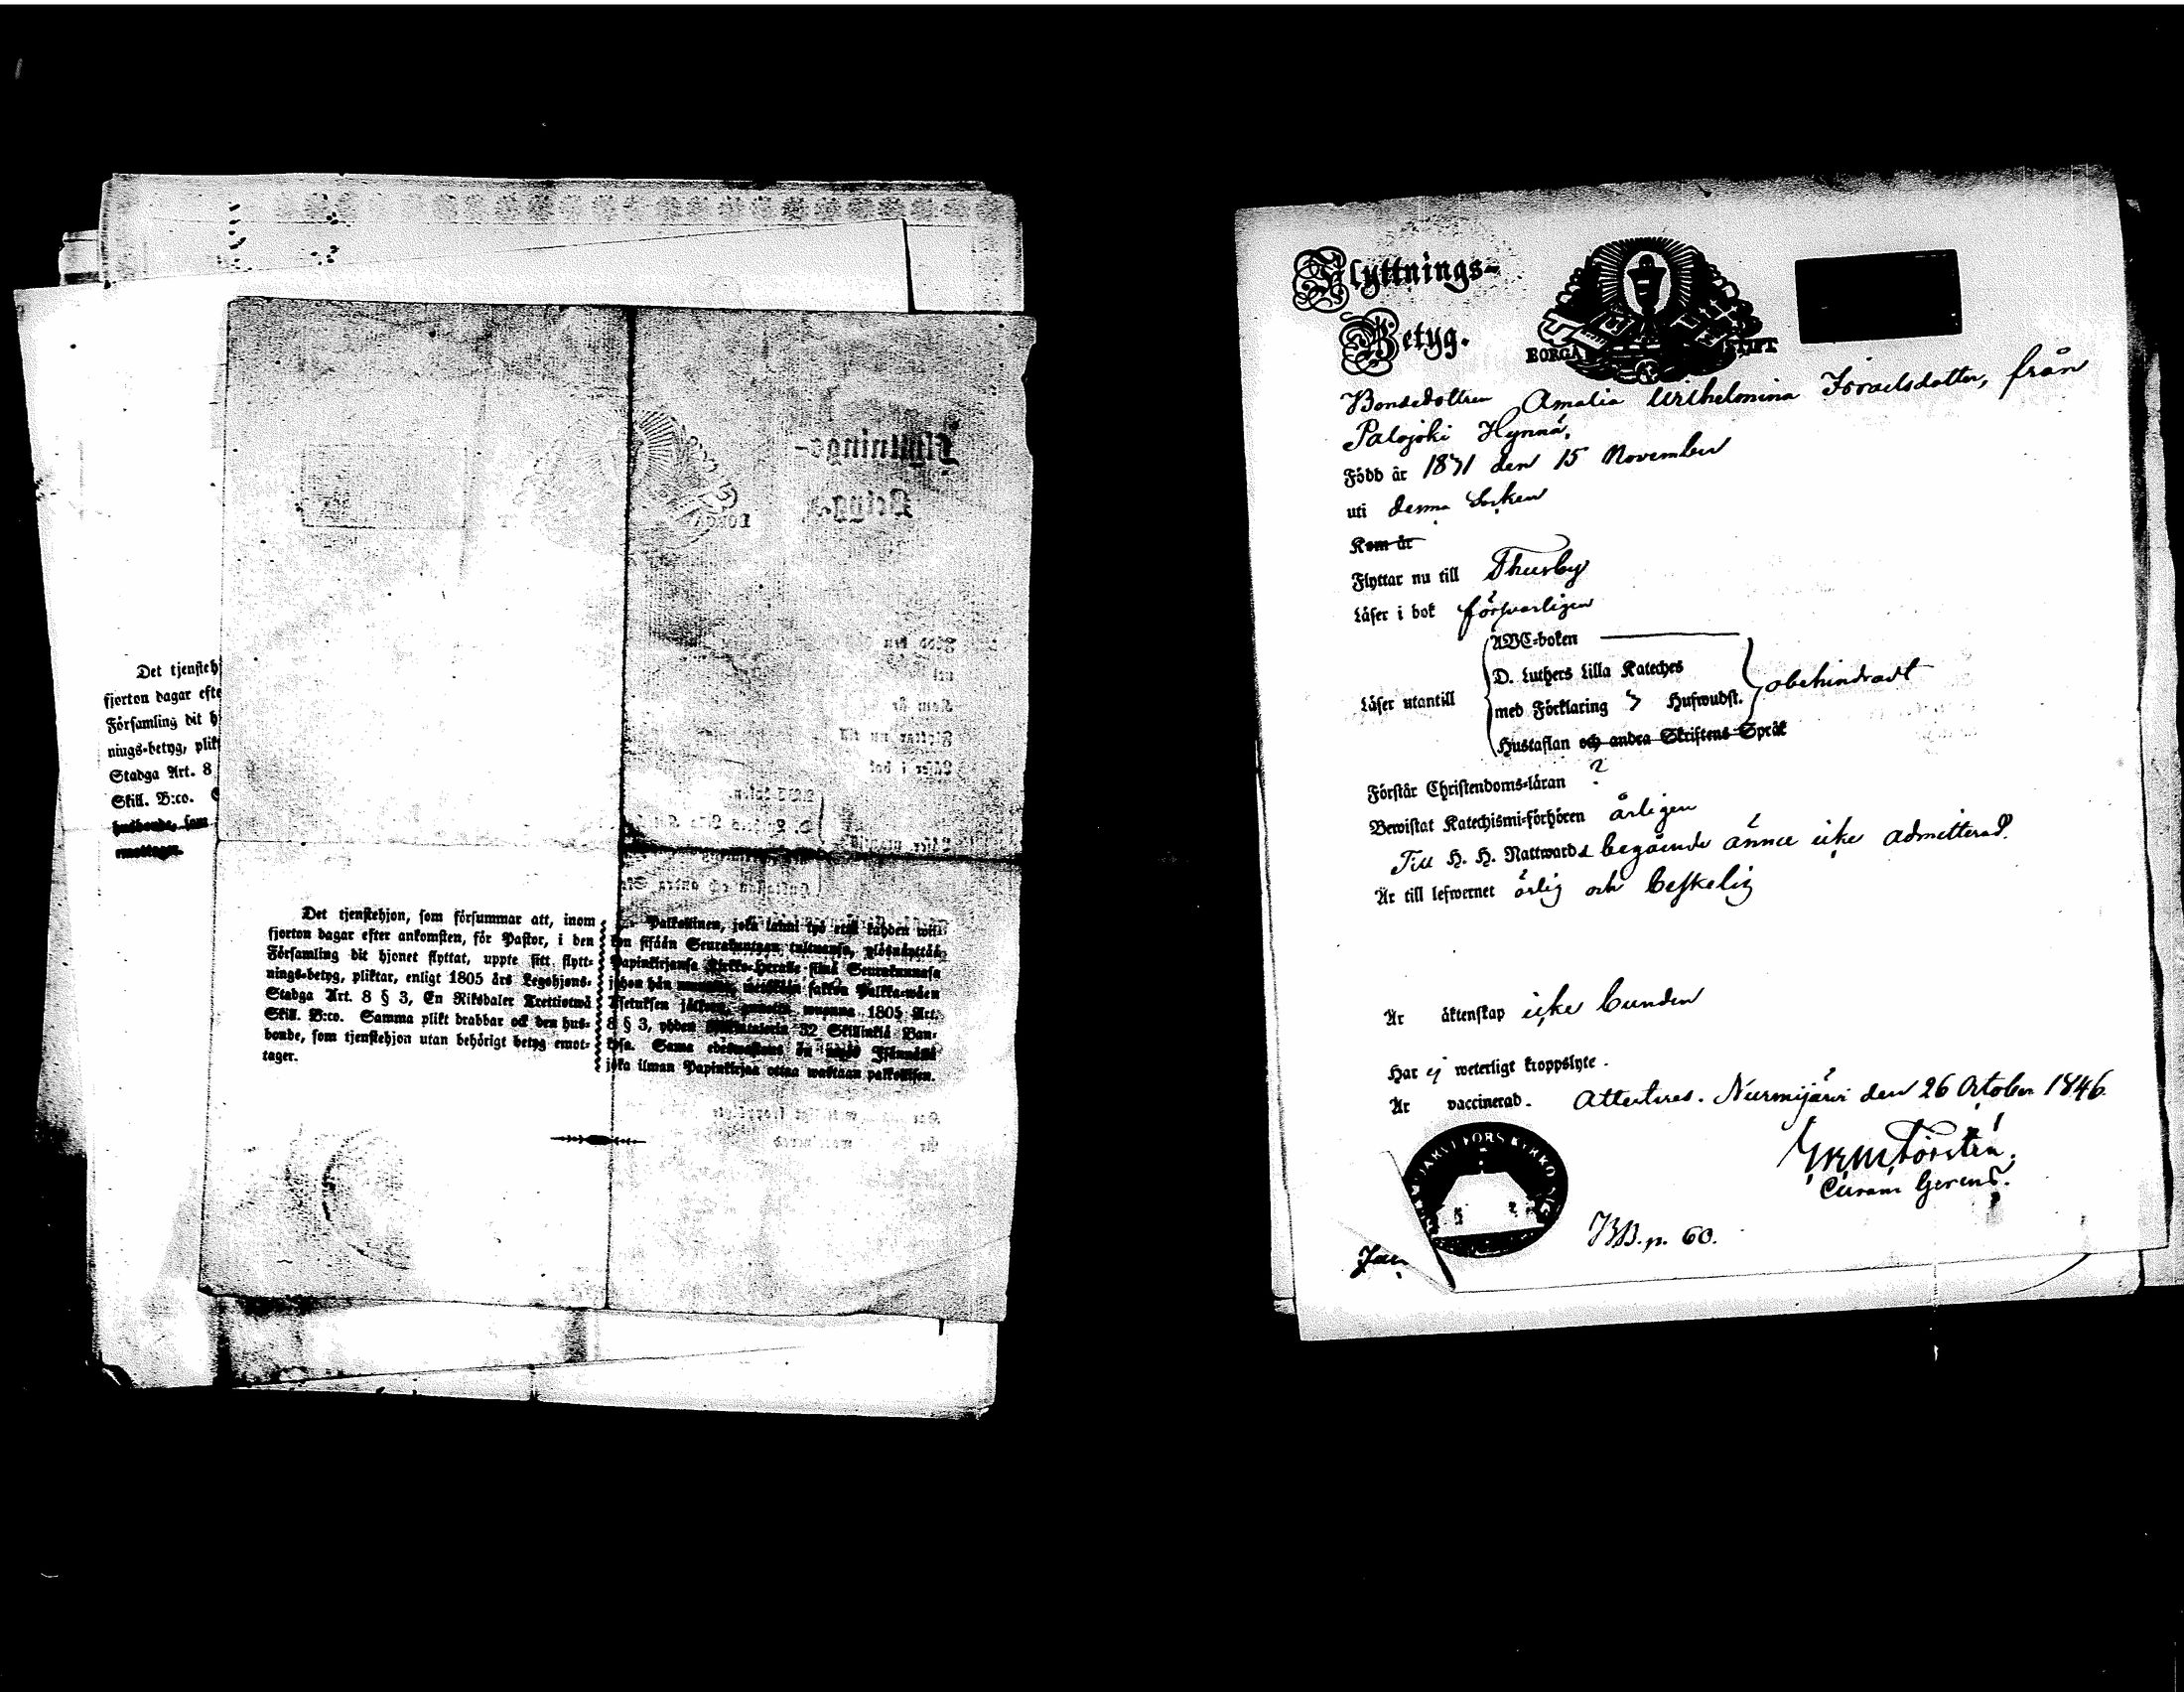 Det tjensteh
fjorton dagar efte
Församling dit h
nings-betyg, plik
Stadga Art. 8
Skill. B:co. S
husbonde, som
emottager.
Flyttnings-
Betyg.
BORGÅ
Det tjenstehjon, som försummar att, inom
fjorton dagar efter ankomsten, för Pastor, i den
Församling dit hjonet flyttat, uppte sitt flytt-
nings-betyg, pliktar, enligt 1805 års Legohjons-
Stadga Art. 8 § 3, En Riksdaler Trettiotwå
Skill. B:co. Samma plikt drabbar ock den hus-
bonde, som tjenstehjon utan behörigt betyg emot-
tager.
Palkollinen, joka laimi lyö että kahden wiii-
kon sisään Seurakuntaan tultuansa, ylösnäyttää
Papinkirjansa Kirkko-Herralle siinä Seurakunnasa
johon hän sakkoa Palkka-wäen
Asetuksen jälkeen, wuonna 1805 Art.
8 § 3, yhden 32 Skillinkiä Ban-
kosa. Sama Isännällä
joka ilman Papinkirjaa ottaa wastaan palkollisen.
Flyttnings-
Betyg.
BORGÅ STIFT
Bondedottren Amalia Wilhelmina Israelsdotter, från
Palojoki Hynnä,
Född år 1831 den 15 November
uti denna Socken
Kom år
Flyttar nu till Thusby
Läser i bok försvarligen
ABC-boken
D. Luthers Lilla Kateches
Läser utantill med Förklaring 5 Hufwudst. obehindradt
Hustaflan och andra Skriftens Språk
Förstår Christendoms-läran ?
Bewistat Katechismi-förhören årligen
Till H. H. Nattwards begående ännu icke admitterad.
Är till lefwernet ärlig och beskelig
Är äktenskap icke bunden
Har ej weterligt kroppslyte.
Är vaccinerad. Attesteres. Nurmijärvi den 26 October 1846.
Curam Gerens.
JÄRVI FORS KYRKO
BB. p. 60.